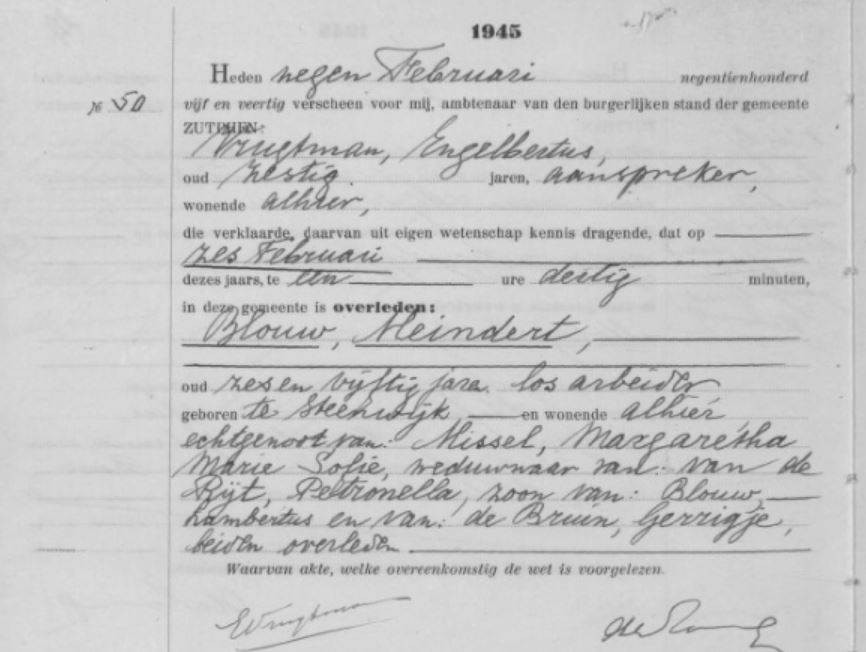 1945
Heden negen Februari negentienhonderd
№ 50
vijf en veertig verscheen voor mij, ambtenaar van den burgerlijken stand der gemeente
ZUTPHEN:
Vrugtman, Engelbertus,
oud zestig jaren, aanspreker,
wonende alhier,
die verklaarde, daarvan uit eigen wetenschap kennis dragende, dat op
zes Februari
dezes jaars, te een ure dertig minuten,
in deze gemeente is overleden:
Blouw, Meindert,
oud zes en vijftig jare los arbeider
geboren te Steenwijk en wonende alhier
echtgenoot van: Missel, Margaretha
Marie Sofie, weduwnaar van: van de
Rijt, Petronella, zoon van: Blouw,
Lambertus en van: de Bruin, Gerrigje,
beiden overleden.
Waarvan akte, welke overeenkomstig de wet is voorgelezen.
EVrugtman